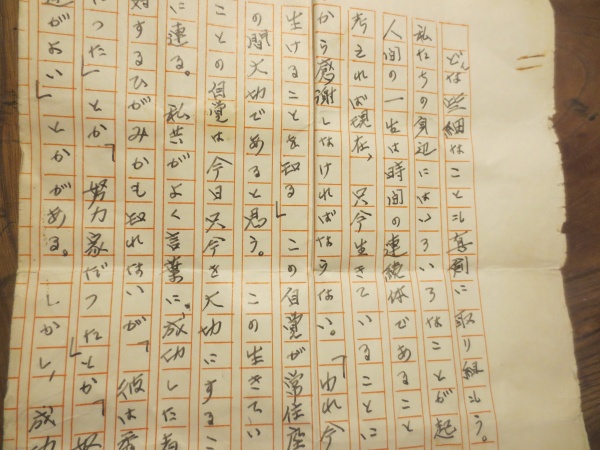 どんな些細なことにも真剣に取り組もう。
私たちの身辺にはいろいろなことが起
人間の一生は時間の連続体であること
考えれば現在、只今生きていることに
から感謝しなければならない。「われ今
生けることを知る」この自覚が常住座
の間大切であると思う。この生きてい
ことの自覚は今日只今を大切にするこ
に連る。私共がよく言葉に、成功した者
対するひがみかも知れないが「彼は
だった」とか「努力家だったとか「
がよい」とかがある。しかし、成功